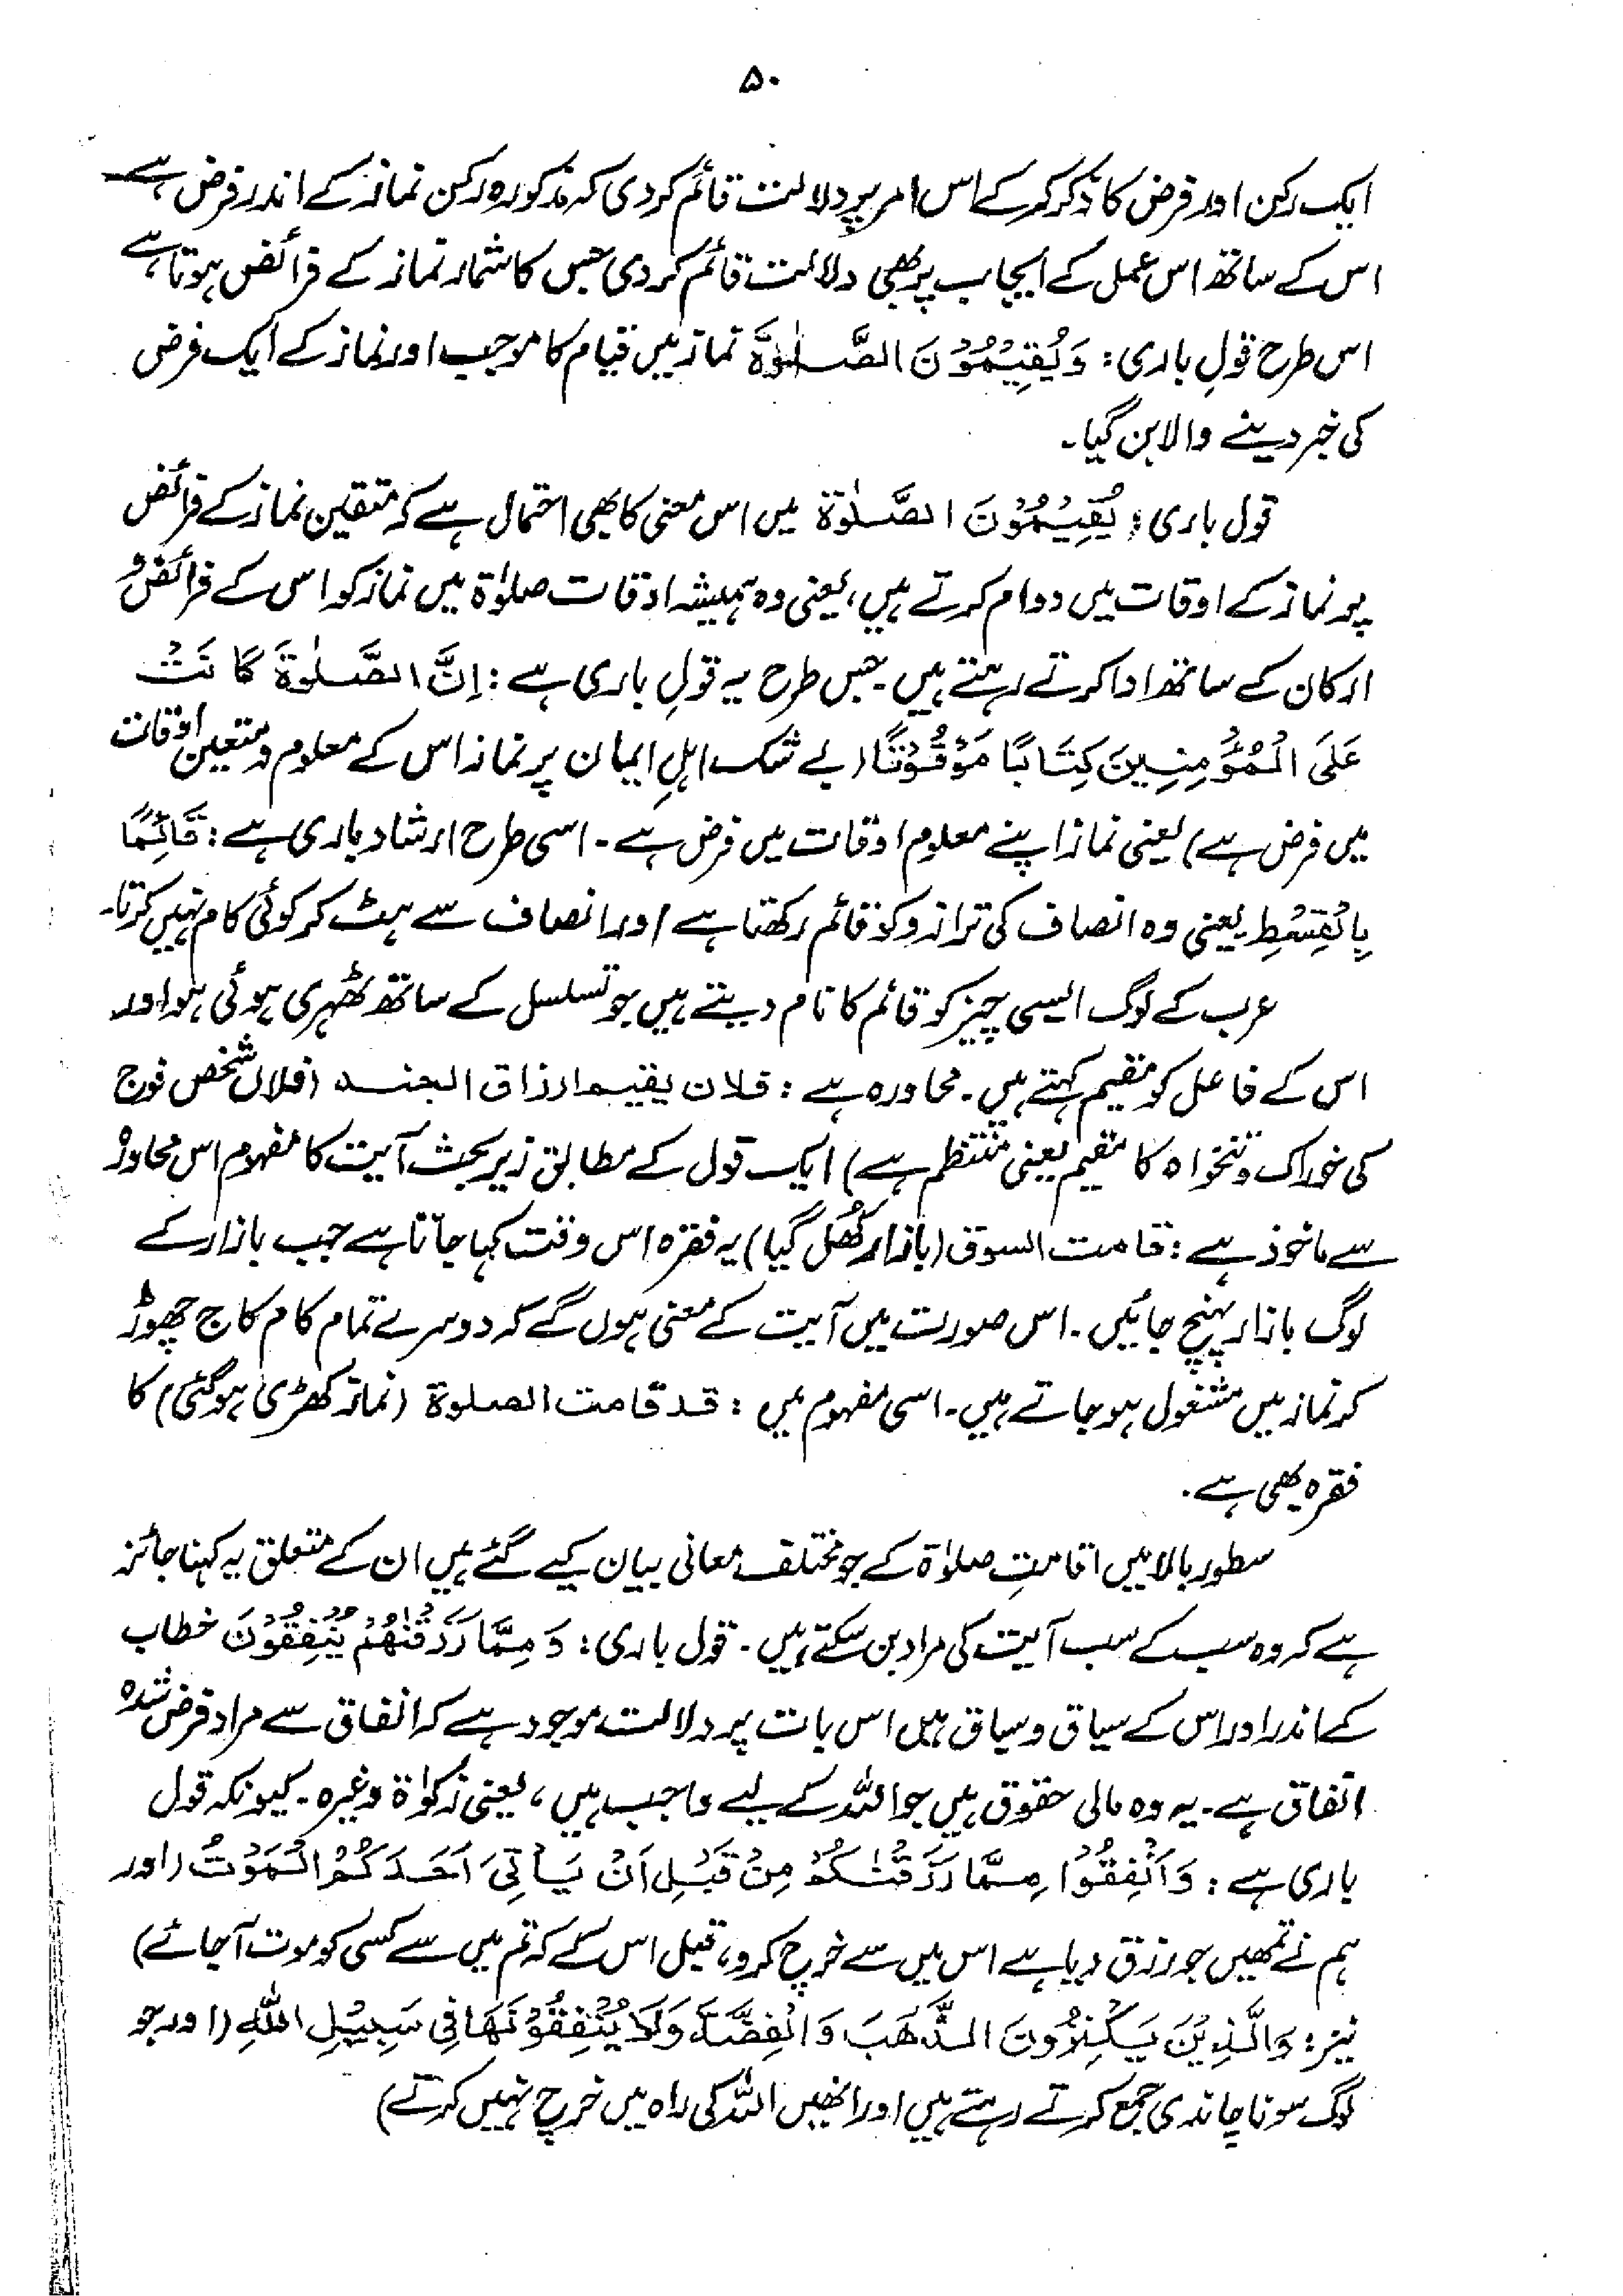 ۵۰
ایک رکن اور فرض کا ذکر کرکے اس امر پر دلالت قائم کردی کہ مذکورہ رکن نماز کے اندر فرض ہے
اس کے ساتھ اس عمل کے ایجاب پر بھی دلالت قائم کردی جس کا شمار نماز کے فرائض ہوتا ہے
اس طرح قولِ باری: وَيُقِيْمُوْنَ الصَّلٰوةَ نماز میں قیام کا موجب اور نماز کے ایک فرض
کی خبر دینے والا بن گیا۔
قول باری: يُقِيْمُوْنَ الصَّلٰوةَ میں اس معنی کا بھی احتمال ہے کہ متقین نماز کے فرائض
پر نماز کے اوقات میں دوام کرتے ہیں، یعنی وہ ہمیشہ اوقات صلوٰۃ میں نماز کو اس کے فرائض و
ارکان کے ساتھ ادا کرتے رہتے ہیں۔ جس طرح یہ قولِ باری ہے: اِنَّ الصَّلٰوةَ كَانَتْ
عَلَى الْمُؤْمِنِينَ كِتَابًا مَوْقُوْتًا (بے شک اہلِ ایمان پر نماز اس کے معلوم و متعین اوقات
میں فرض ہے) یعنی نماز اپنے معلوم اوقات میں فرض ہے۔ اسی طرح ارشاد باری ہے: قَائِمًا
بِالْقِسْطِ یعنی وہ انصاف کی ترازو کو قائم رکھتا ہے اور انصاف سے ہٹ کر کوئی کام نہیں کرتا۔
عرب کے لوگ ایسی چیز کو قائم کا نام دیتے ہیں جو تسلسل کے ساتھ ٹھہری ہوئی ہو اور
اس کے فاعل کو مقیم کہتے ہیں۔ محاورہ ہے: فلان یقیم ارزاق الجند (فلاں شخص فوج
کی خوراک و تنخواہ کا مقیم یعنی منتظم ہے) ایک قول کے مطابق زیر بحث آیت کا مفہوم اس محاورہ
سے ماخوذ ہے: قامت السوق (بازار کُھل گیا) یہ فقرہ اس وقت کہا جاتا ہے جب بازار کے
لوگ بازار پہنچ جائیں۔ اس صورت میں آیت کے معنی ہوں گے کہ دوسرے تمام کام کاج چھوڑ
کر نماز میں مشغول ہو جاتے ہیں۔ اسی مفہوم میں: قد قامت الصلوة (نماز کھڑی ہوگئی) کا
فقرہ بھی ہے۔
سطور بالا میں اقامتِ صلوٰۃ کے جو مختلف معانی بیان کیے گئے ہیں ان کے متعلق یہ کہنا جائز
ہے کہ وہ سب کے سب آیت کی مراد بن سکتے ہیں۔ قول باری: وَمِمَّا رَزَقْنٰهُمْ يُنْفِقُوْنَ خطاب
کے اندر اور اس کے سیاق و سباق میں اس بات پر دلالت موجود ہے کہ انفاق سے مراد فرض شدہ
انفاق ہے۔ یہ وہ مالی حقوق ہیں جو اللہ کے لیے واجب ہیں، یعنی زکوٰۃ وغیرہ۔ کیونکہ قول
باری ہے: وَاَنْفِقُوْا مِمَّا رَزَقْنٰكُمْ مِنْ قَبْلِ اَنْ يَأْتِيَ اَحَدَكُمُ الْمَوْتُ (اور
ہم نے تمھیں جو رزق دیا ہے اس میں سے خرچ کرو، قبل اس کے کہ تم میں سے کسی کو موت آجائے)
نیز: وَالَّذِيْنَ يَكْنِزُوْنَ الذَّهَبَ وَالْفِضَّةَ وَلَا يُنْفِقُوْنَهَا فِي سَبِيْلِ اللهِ (اور جو
لوگ سونا چاندی جمع کرتے رہتے ہیں اور انھیں اللہ کی راہ میں خرچ نہیں کرتے)